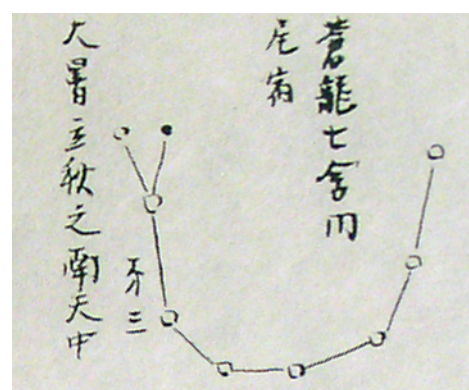 蒼龍七舍内
尾宿
大暑立秋之南天中